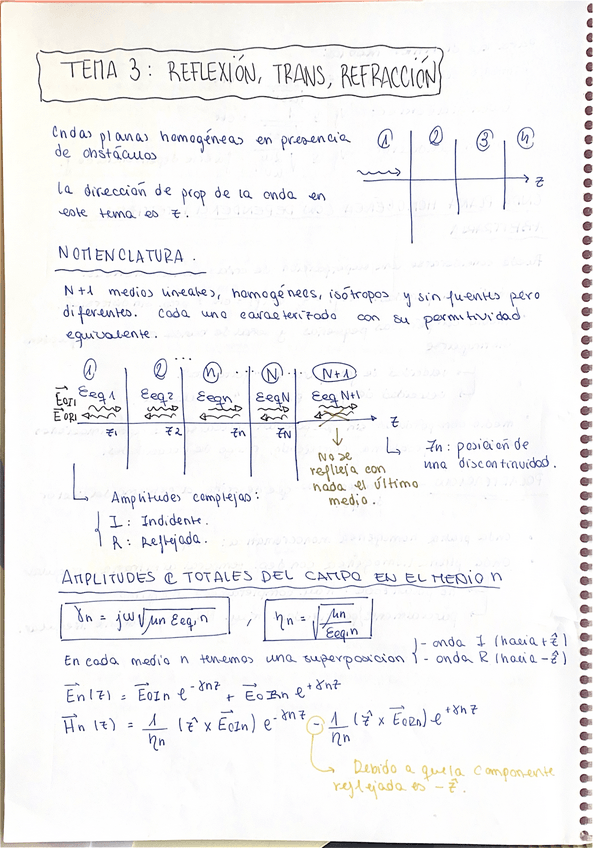 TEMA 3: REFLEXIÓN, TRANS, REFRACCIÓN
Ondas planas homogéneas en presencia
de obstáculos
1 2 3 n
z
La dirección de prop de la onda en
este tema es z.
NOMENCLATURA.
N+1 medios lineales, homogéneos, isótropos y sin fuentes pero
diferentes. Cada uno caracterizado con su permitividad
equivalente.
1 2 ... n ... N N+1
εeq1 εeq2 εeqn εeqN εeq N+1
E⃗OI1
E⃗OR1
z1 z2 zn zN z
No se
refleja con
nada el último
medio.
zn: posición de
una discontinuidad.
Amplitudes complejas:
I: Indidente.
R: Reflejada.
AMPLITUDES ℂ TOTALES DEL CAMPO EN EL MEDIO n
γn = jω√μn εeq,n , ηn = √μn/εeq,n
En cada medio n tenemos una superposicion { - onda I (hacia +ẑ)
- onda R (hacia -ẑ)
E⃗n(z) = E⃗OIn e^-γnz + E⃗ORn e^+γnz
H⃗n(z) = 1/ηn (ẑ x E⃗OIn) e^-γnz - 1/ηn (ẑ x E⃗ORn) e^+γnz
Debido a que la componente
reflejada es -ẑ.